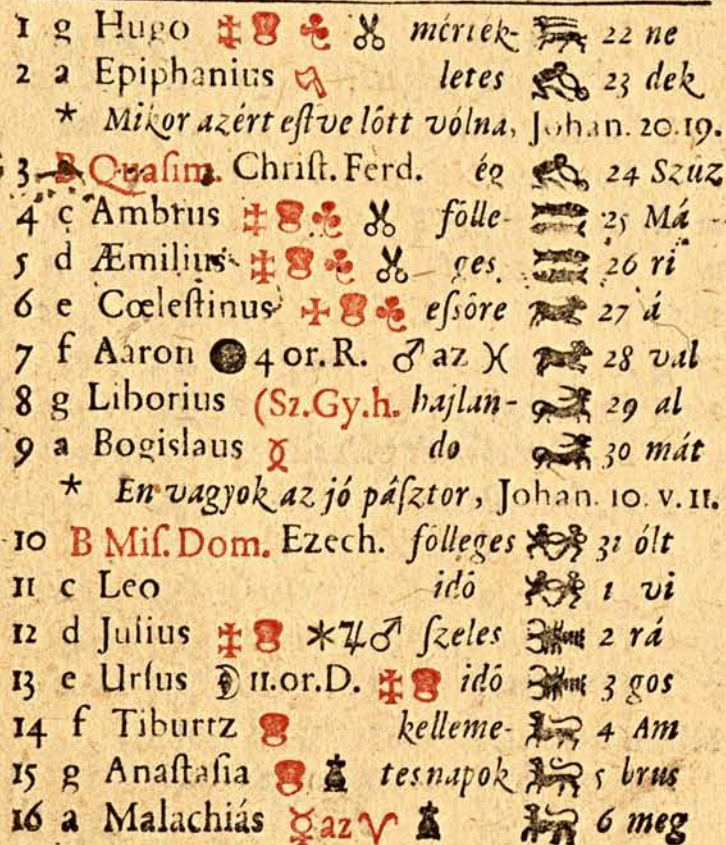 1 g Hugo mérték- 22 ne
2 a Epiphanius letes 23 dek
* Mikor azért eſtve lött vólna, Johan. 20.19.
3 B Quaſim. Chriſt. Ferd. ég 24 Szűz
4 c Ambrus fölle- 25 Má
5 d Æmilius ges 26 ri
6 e Cœleſtinus eſsöre 27 á
7 f Aaron 4 or. R. ♂ az ♓ 28 val
8 g Liborius (Sz.Gy.h. hajlan- 29 al
9 a Bogislaus do 30 mát
* En vagyok az jó páſztor, Johan. 10. v. 11.
10 B Miſ. Dom. Ezech. fölleges 31 ólt
11 c Leo idö 1 vi
12 d Julius ⚹♃♂ ſzeles 2 rá
13 e Urſus 11.or.D. idö 3 gos
14 f Tiburtz kelleme- 4 Am
15 g Anaſtaſia tes napok 5 brus
16 a Malachiás ☿ az ♈ 6 meg